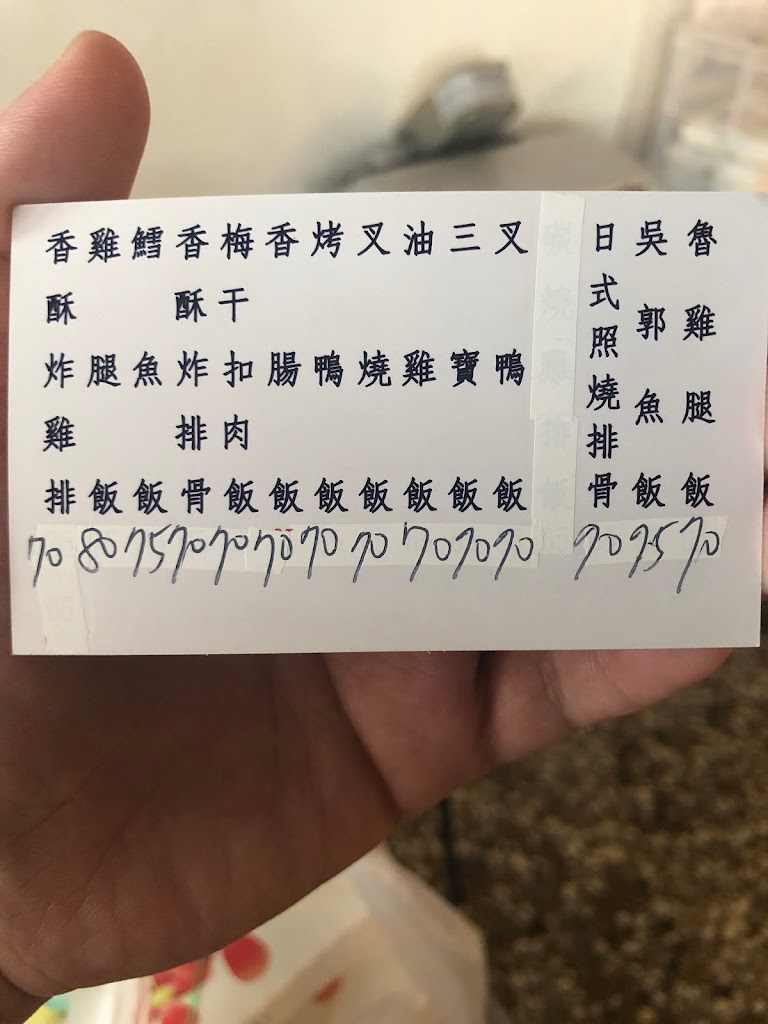 魯雞腿飯 70
吳郭魚飯 75
日式照燒排骨 70
叉鴨飯 70
三寶飯 70
油雞飯 70
叉燒飯 70
烤鴨飯 70
香腸飯 70
梅干扣肉飯 70
香酥炸排骨 70
鱈魚飯 75
雞腿飯 80
香酥炸雞排 70